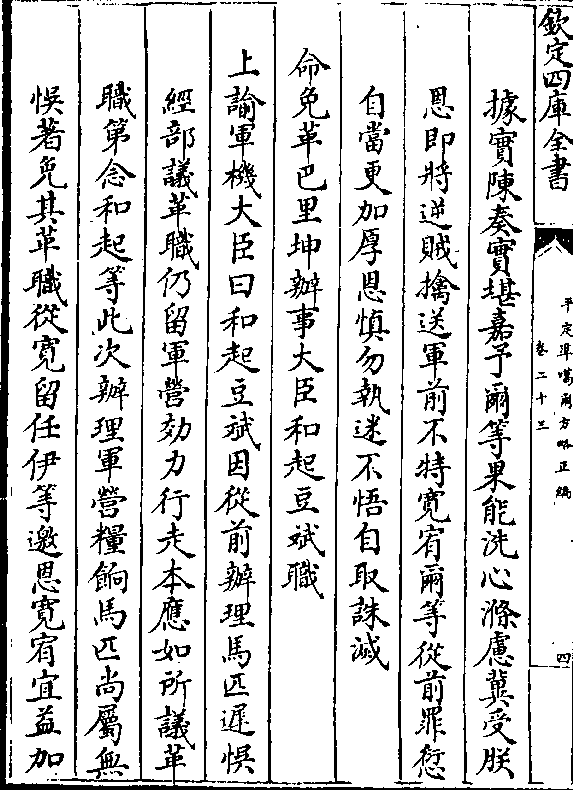 欽定四庫全書
平定準噶爾方略正編
卷二十三
四
據實陳奏實堪嘉予爾等果能洗心滌慮冀受朕
恩即將逆賊擒送軍前不特寬宥爾等從前罪愆
自當更加厚恩慎勿執迷不悟自取誅滅
命免革巴里坤辦事大臣和起豆斌職
上諭軍機大臣曰和起豆斌因從前辦理馬匹遲悞
經部議革職仍留軍營効力行走本應如所議革
職第念和起等此次辦理軍營糧餉馬匹尚屬無
悞著免其革職從寬留任伊等邀恩寬宥宜益加